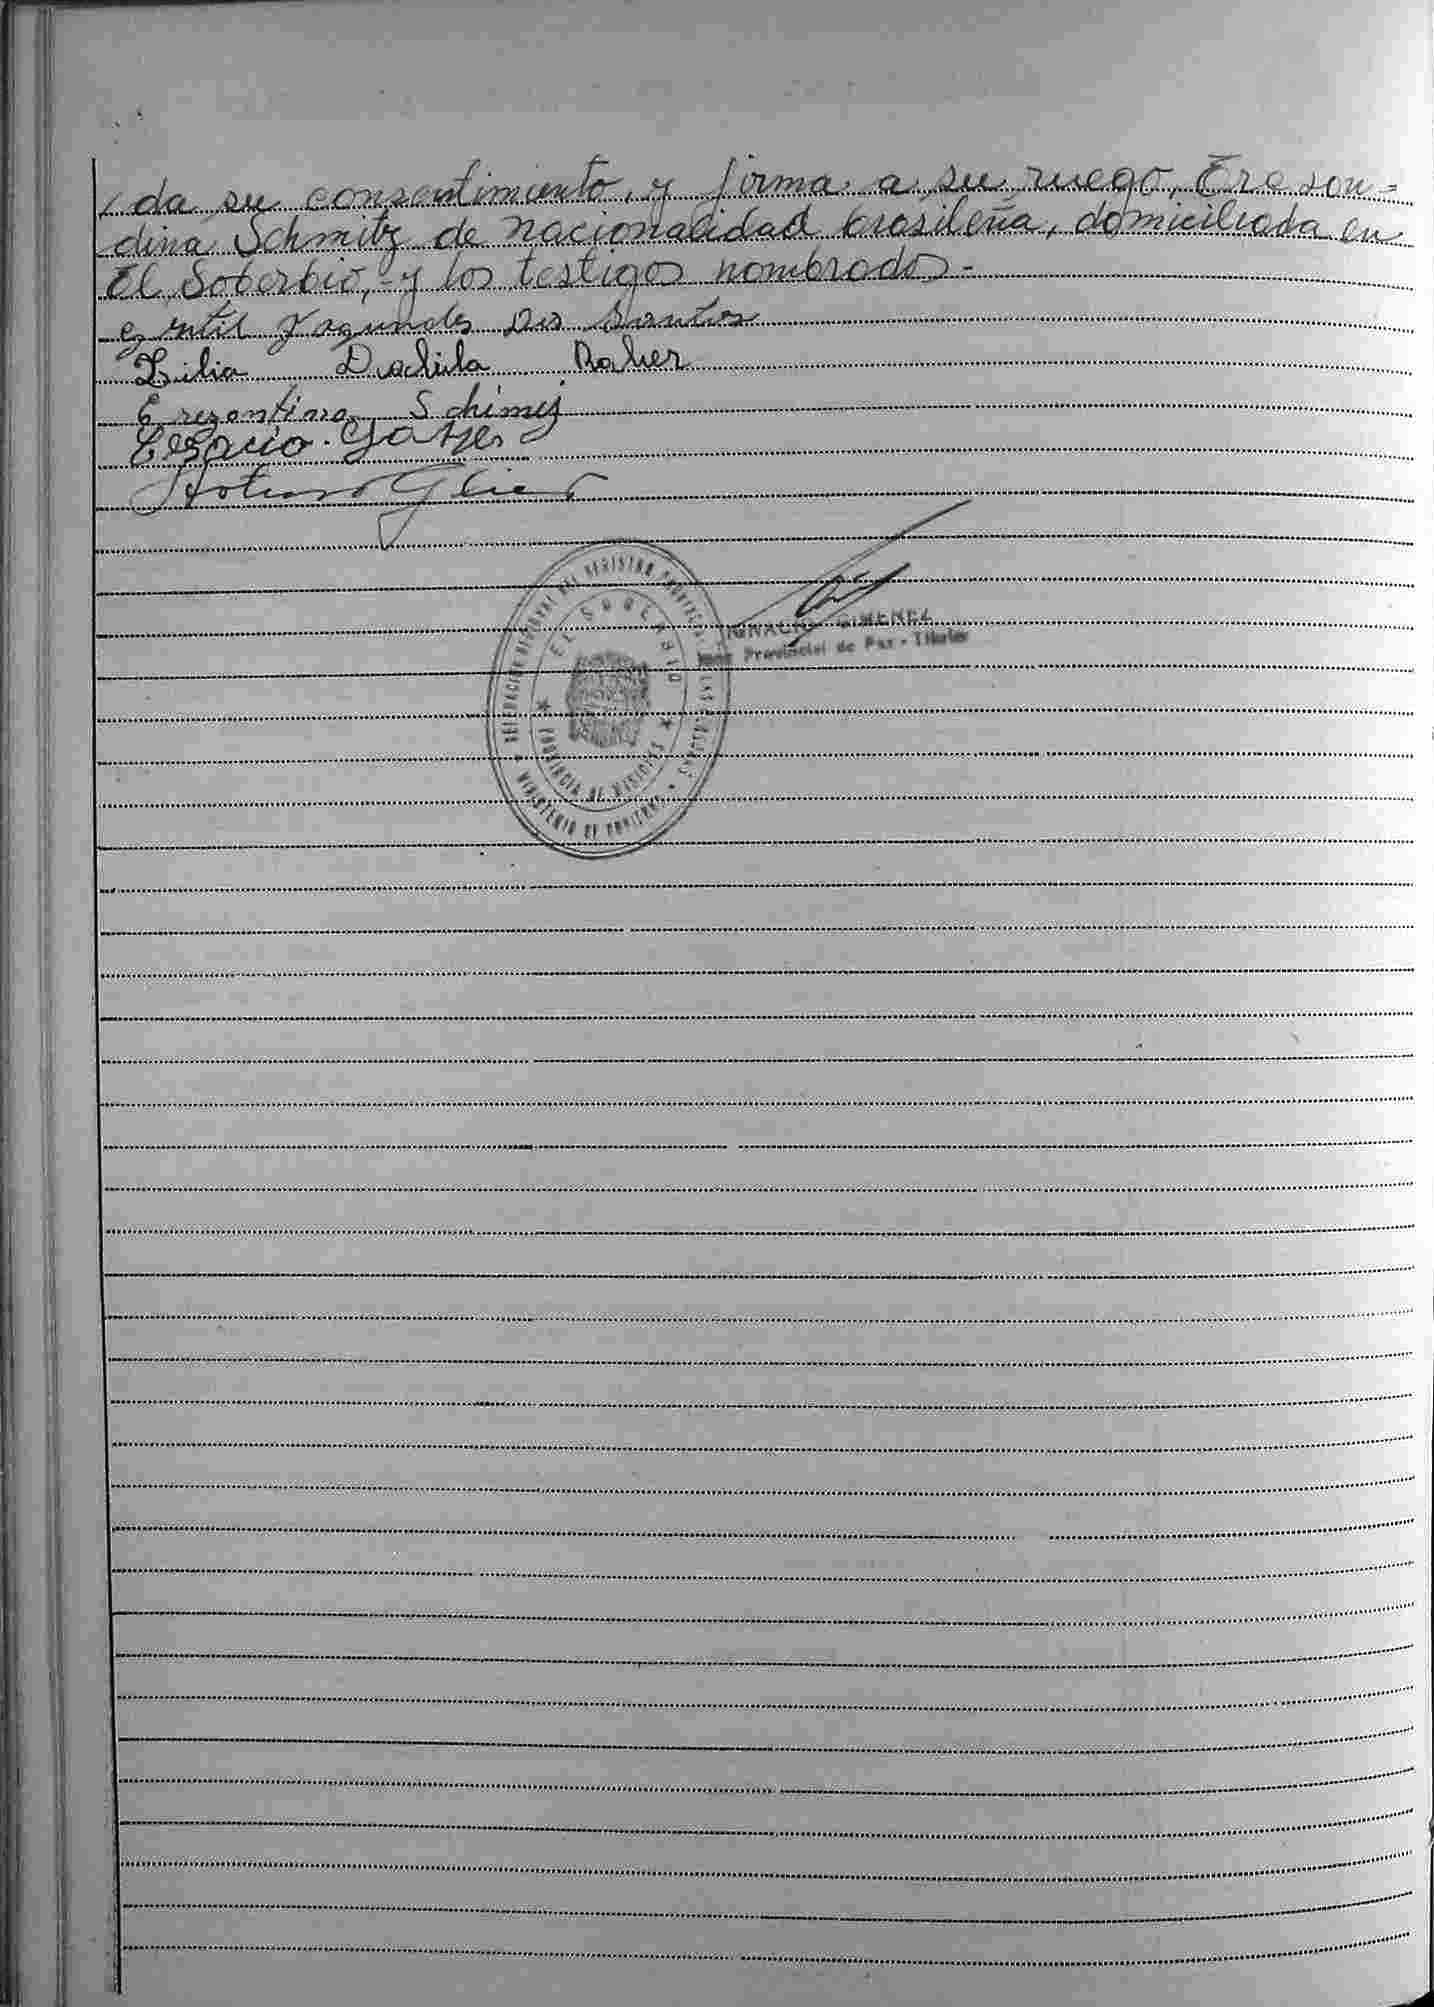 da su consentimiento, y firma a su ruego, Ereson=
dina Schmitz de nacionalidad brasileña, domiciliada en
El Soberbio,- y los testigos nombrados-
Fagundes Dos Santos
Lilia
Erezontina Schimij
Arturo
DELEGACION REGIONAL DEL REGISTRO PROVINCIAL DE LAS PERSONAS
EL SOBERBIO
PROVINCIA DE MISIONES
MINISTERIO DE GOBIERNO
IGNACIO GIMENEZ
Juez Provincial de Paz - Titular